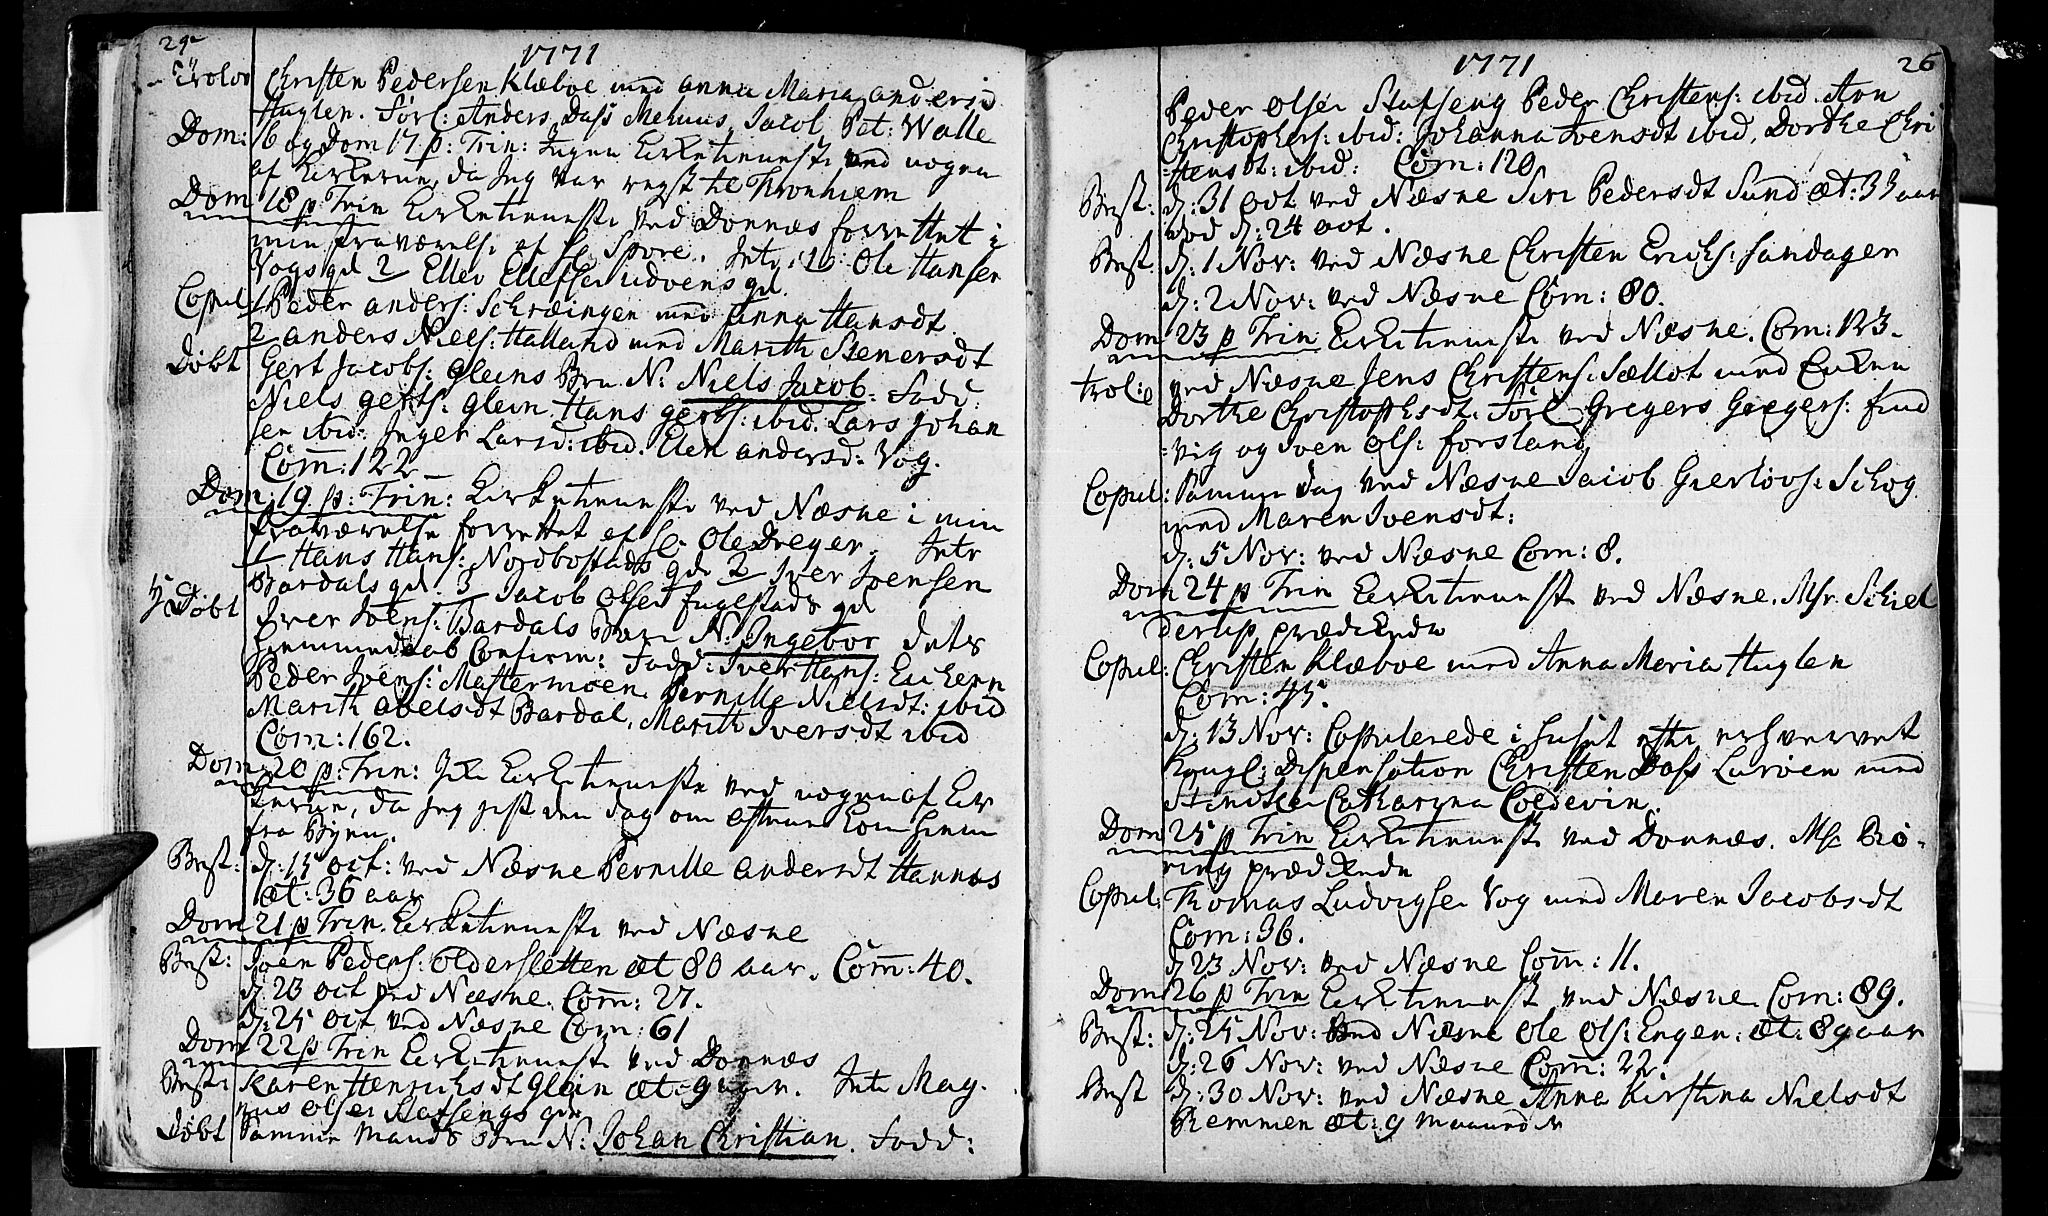 1771
Trolov Christen Pedersen Klæboe med Anna Maria Andersd
Huglen. Forl: Anders Dass Mehuus, Jacob Pet: Walle
Dom: 16 og Dom 17 p: Trin: Ingen Kirketienniste ved nogen
af Kirkerne, da Jeg var reyst til Tronhiem
Dom 18 p Trin Kirketienniste ved Dønnæs forrettet i
min fraværelse af Hr Spore. Intr: 1 Ole Hansen
Vogs qd 2 Ellen Ellefsen
Copul 1 Peder Anders: Schrødingen med Anna Hansdt
2 Anders Niels: Halland med Marith Stenersdt
Døbt Gert Jacobs: Gleins Barn N: Niels Jacob. Fadd:
Niels Gerts: Glein Hans Gerts: ibid. Lars Johan
sen ibid: Inger Larsd: ibid. Elen Andersd: Vog.
Com: 122
Dom: 19 p: Trin: Kirketienniste ved Næsne i min
fraværelse forrettet af Hr Ole Dreyer. Intr
1 Hans Hans: Nordbostads qd 2 Iver Ivensen
Bardals qd. 3 Jacob Olsen Fuglestads qd
Døbt Iver Ivens: Bardals Barn N: Ingebor dets
hiemmedaab Confirm: Fadd: Iver Hans:
Peder Ivens: Mastermoen. Pernille Nielsdt: ibid
Marith Abelsdt Bardal, Marith Iversdt ibid
Com: 162.
Dom 20 p: Trin: Icke Kirketienniste ved nogen af Kir
kerne, da jeg just den dag om aftenen kom hiem
fra Byen.
Best: d: 15 oct: ved Næsne Pernille Andersdt Hannæs
æt: 36 aar
Dom 21 p Trin. Kirketienniste ved Næsne
Best: Joen Peders: Oldersletten æt 80 aar. Com: 40.
d: 23 oct ved Næsne. Com: 27.
d: 25 oct ved Næsne Com: 61
Dom 22 p Trin Kirketienniste ved Dønnæs
Best: Karen Henrichsdt Glein æt: 9 Intr Mag-
nus Olsen Stafsengs qd
Døbt Samme Mands Barn N: Johan Christian. Fadd:
1771 26
Peder Olsen Stafseng Peder Christens: ibid. Arn
Christophers: ibid: Johanna Ivensdt ibid, Dorthe Chri
stensdt: ibid: Com: 120
Best: d: 31 oct ved Næsne Siri Pedersdt Sund æt: 33 aar
død d: 24 oct.
Best: d: 1 Nov: ved Næsne Christen Ericks: Sandager
d: 2 Nov: ved Næsne Com: 80.
Dom 23 p Trin Kirketienniste ved Næsne. Com: 123.
trol: ved Næsne Jens Christens: Sællot med Enken
Dorthe Christophsdt. Forl Gregers Gregers: Find
vig og Iven Ols: Forsland
Copul: Samme dag ved Næsne Jacob Gierlovs: Schog
med Maren Ivensdt:
d: 5 Nov: ved Næsne Com: 8.
Dom 24 p Trin Kirketienniste ved Næsne. Msr. Schiel
derup prædikede
Copul: Christen Klæboe med Anna Maria Huglen
Com: 45.
d: 13 Nov: Copulerede i huset efter erhvervet
Kongl: Dispensation Christen Dass Lurøen med
Catharina Coldevin.
Dom 25 p Trin Kirketienniste ved Dønnæs. Msr Biø-
ring prædikede
Copul: Thomas Ludvigsen Vog med Maren Jacobsdt
Com: 36.
d 23 Nov: ved Næsne Com: 11.
Dom 26 p Trin Kirketienniste ved Næsne. Com: 89.
Best: d: 25 Nov: ved Næsne Ole Ols: Engen: æt: 89 aar
d: 26 Nov: ved Næsne Com: 22.
Best d: 30 Nov: ved Næsne Anna Kirstina Nielsdt
Remmen æt: 9 maaneder